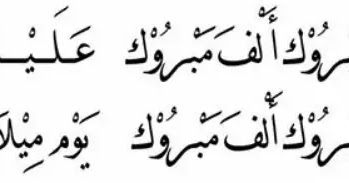 رُوْك أَلْفَ مَبْرُوْك عَلَيْـ
رُوْك أَلْفَ مَبْرُوْك يَوْم مِيْلَا